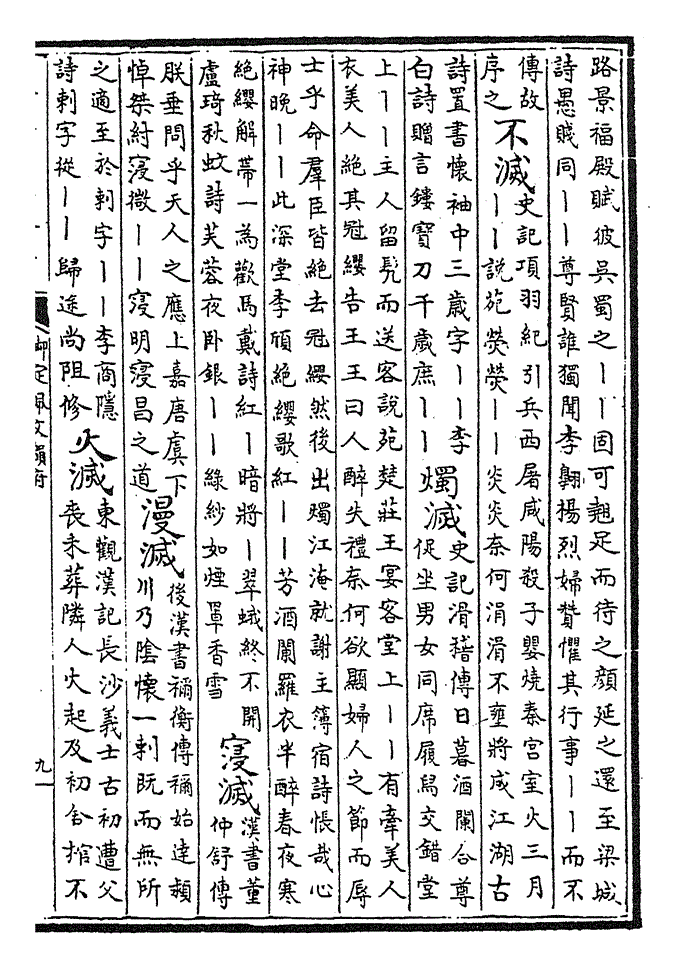 路景福殿賦彼吳蜀之丨丨固可翹足而待之顏延之還至梁城
詩愚賤同丨丨尊賢誰獨聞李翺楊烈婦贊懼其行事丨丨而不
傳故
序之
不滅
史記項羽紀引兵西屠咸陽殺子嬰燒秦宮室火三月
丨丨說苑熒熒丨丨炎炎奈何涓涓不壅將成江湖古
詩置書懷袖中三歲字丨丨李
白詩贈言鏤寶刀千歲庶丨丨
燭滅
史記滑稽傳日暮酒闌合尊
促坐男女同席履舄交錯堂
上丨丨主人留髡而送客說苑楚莊王宴客堂上丨丨有牽美人
衣美人絕其冠纓告王王曰人醉失禮奈何欲顯婦人之節而辱
士乎命羣臣皆絕去冠纓然後出燭江淹就謝主簿宿詩悵哉心
神晚丨丨此深堂李頎絕纓歌紅丨丨芳酒闌羅衣半醉春夜寒
絕纓解帶一為歡馬戴詩紅丨暗將丨翠蛾終不開
盧琦秋蚊詩芙蓉夜卧銀丨丨綠紗如煙罩香雪
寖滅
漢書董
仲舒傳
朕垂問乎天人之應上嘉唐虞下
悼桀紂寖微丨丨寖明寖昌之道
漫滅
後漢書禰衡傳禰始達潁
川乃陰懷一刺既而無所
之適至於刺字丨丨李商隱
詩刺字從丨丨歸途尚阻修
火滅
東觀漢記長沙義士古初遭父
喪未葬隣人火起及初舍棺不
御定佩文韻府
九